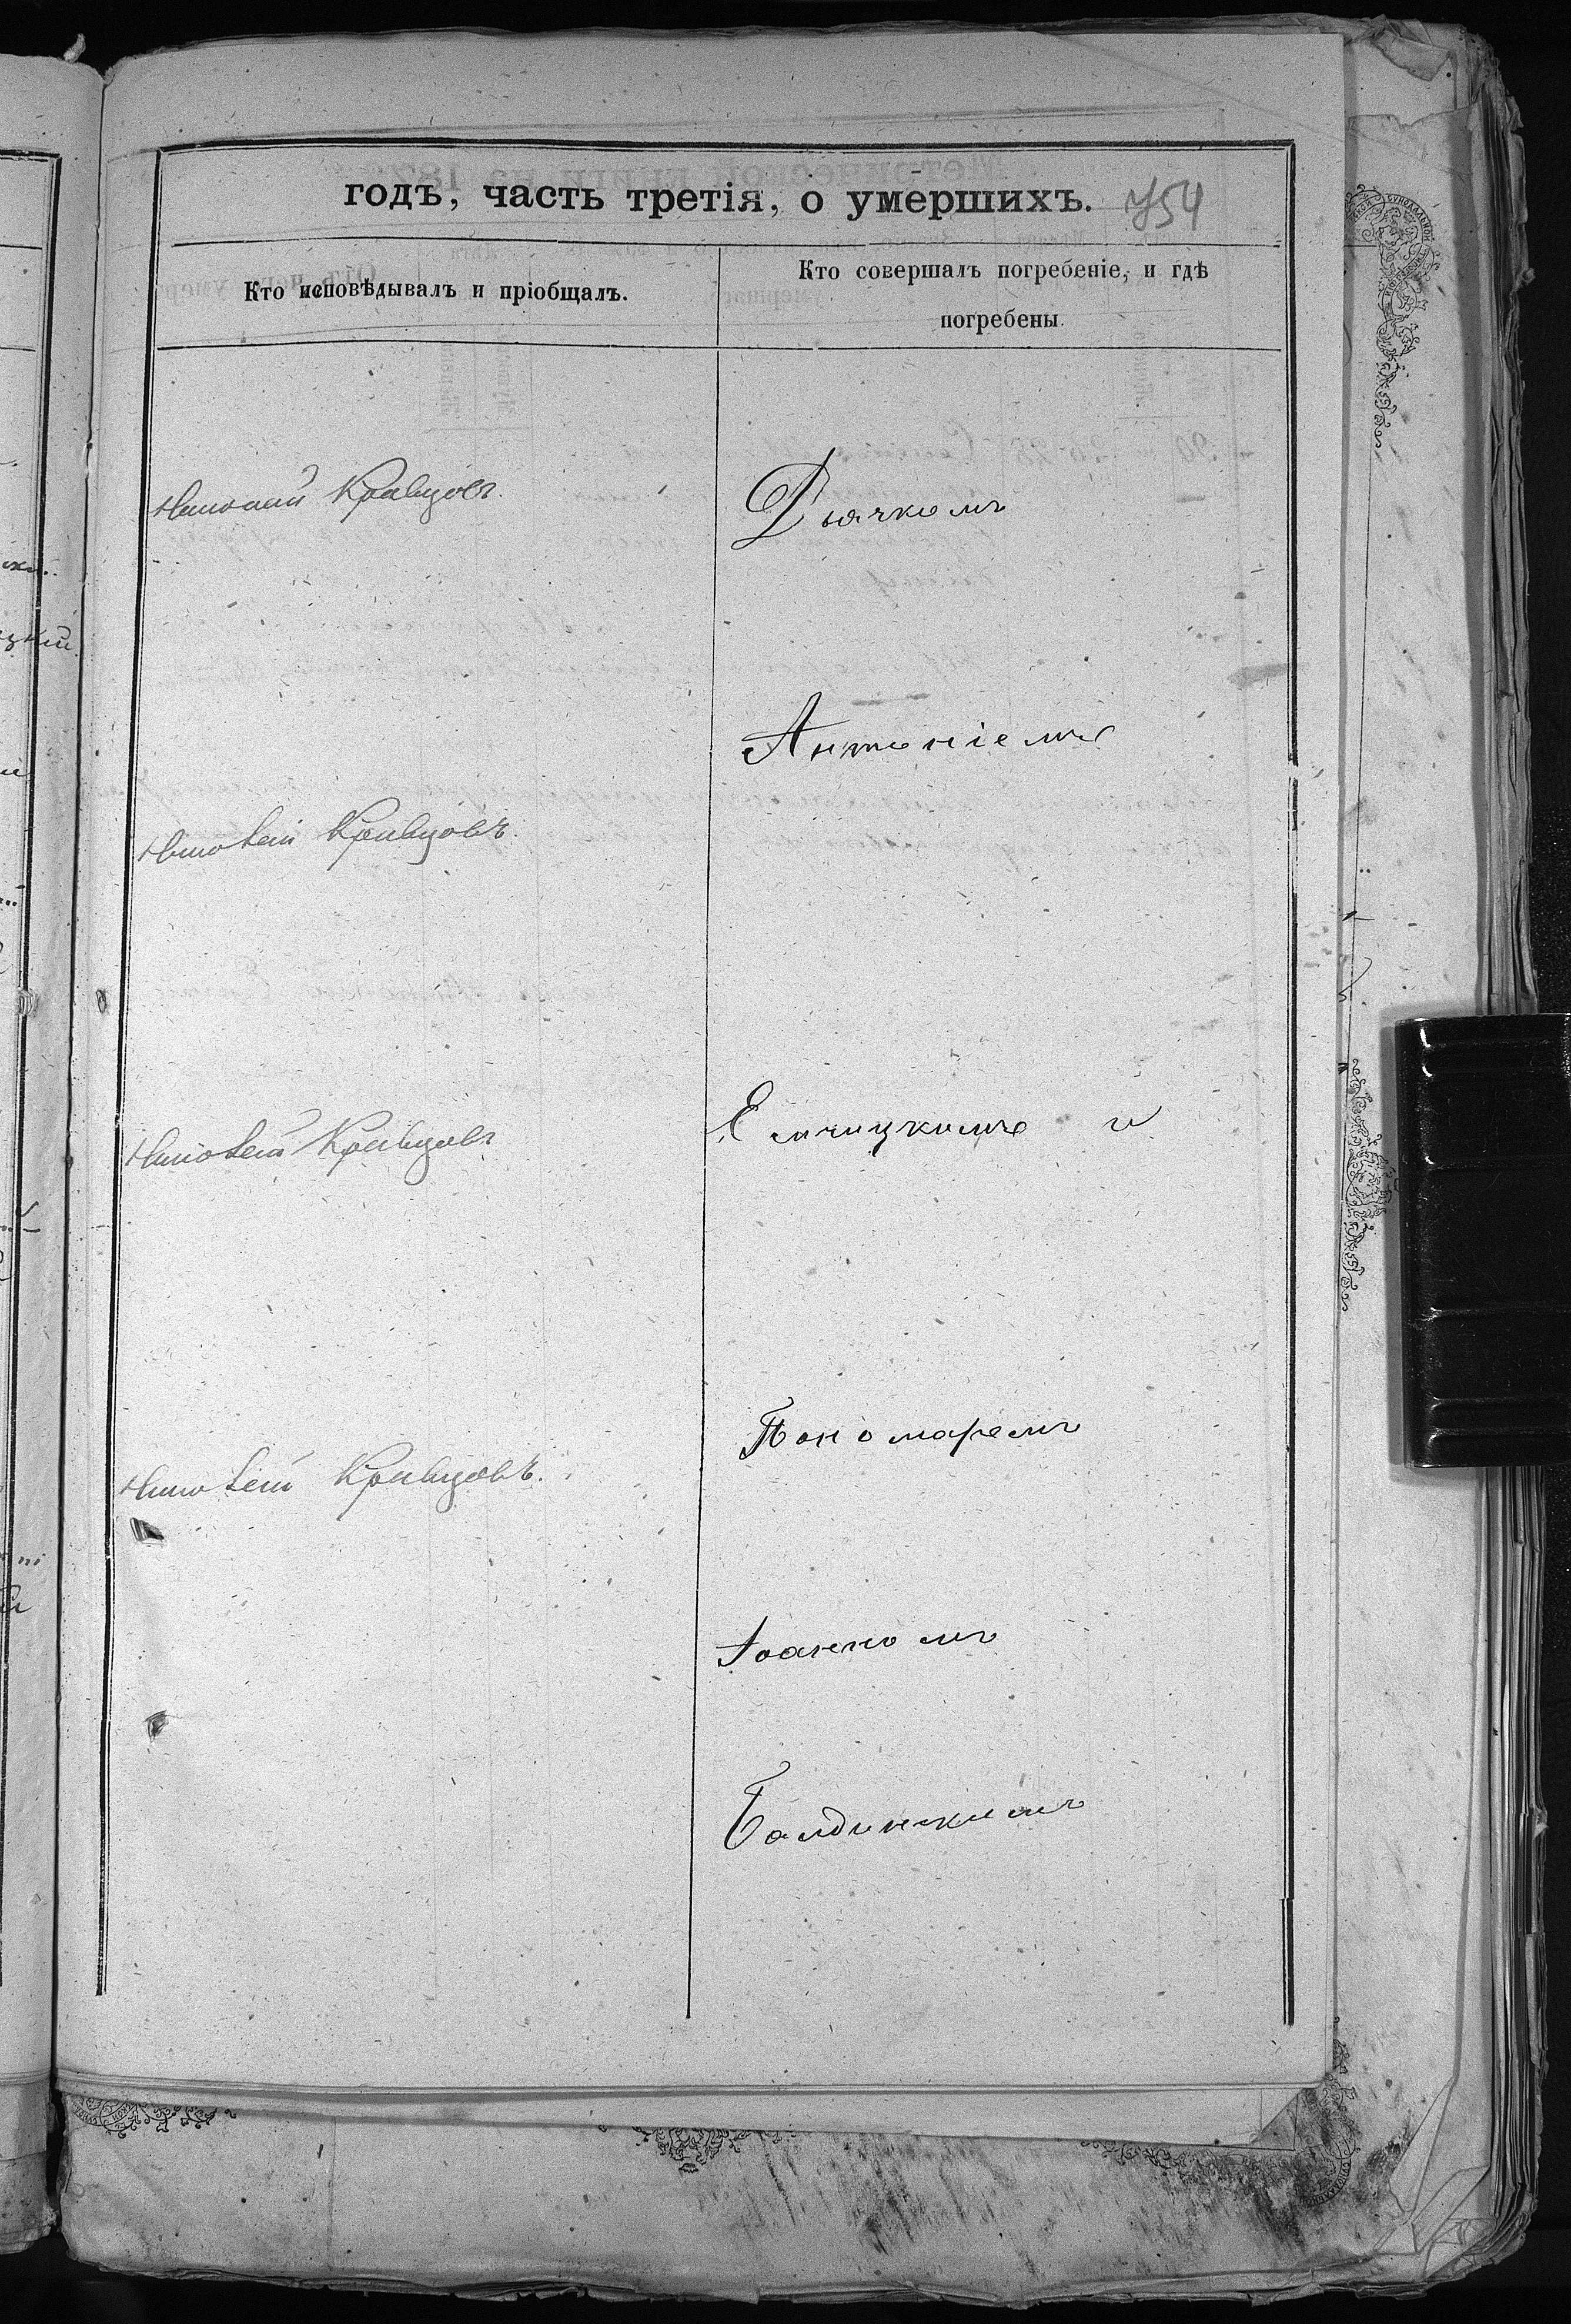 годъ, часть третія, о умершихъ. 754
Кто исповѣдывалъ и пріобщалъ.
Кто совершалъ погребеніе, и гдѣ
погребены.
Николай Кравцовъ.
Дьячкомъ
Антоніемъ
Николай Кравцовъ.
Николай Кравцовъ
Емчицкимъ и
Пономаремъ
Николай Кравцовъ.
Іоанномъ
Балдинскимъ